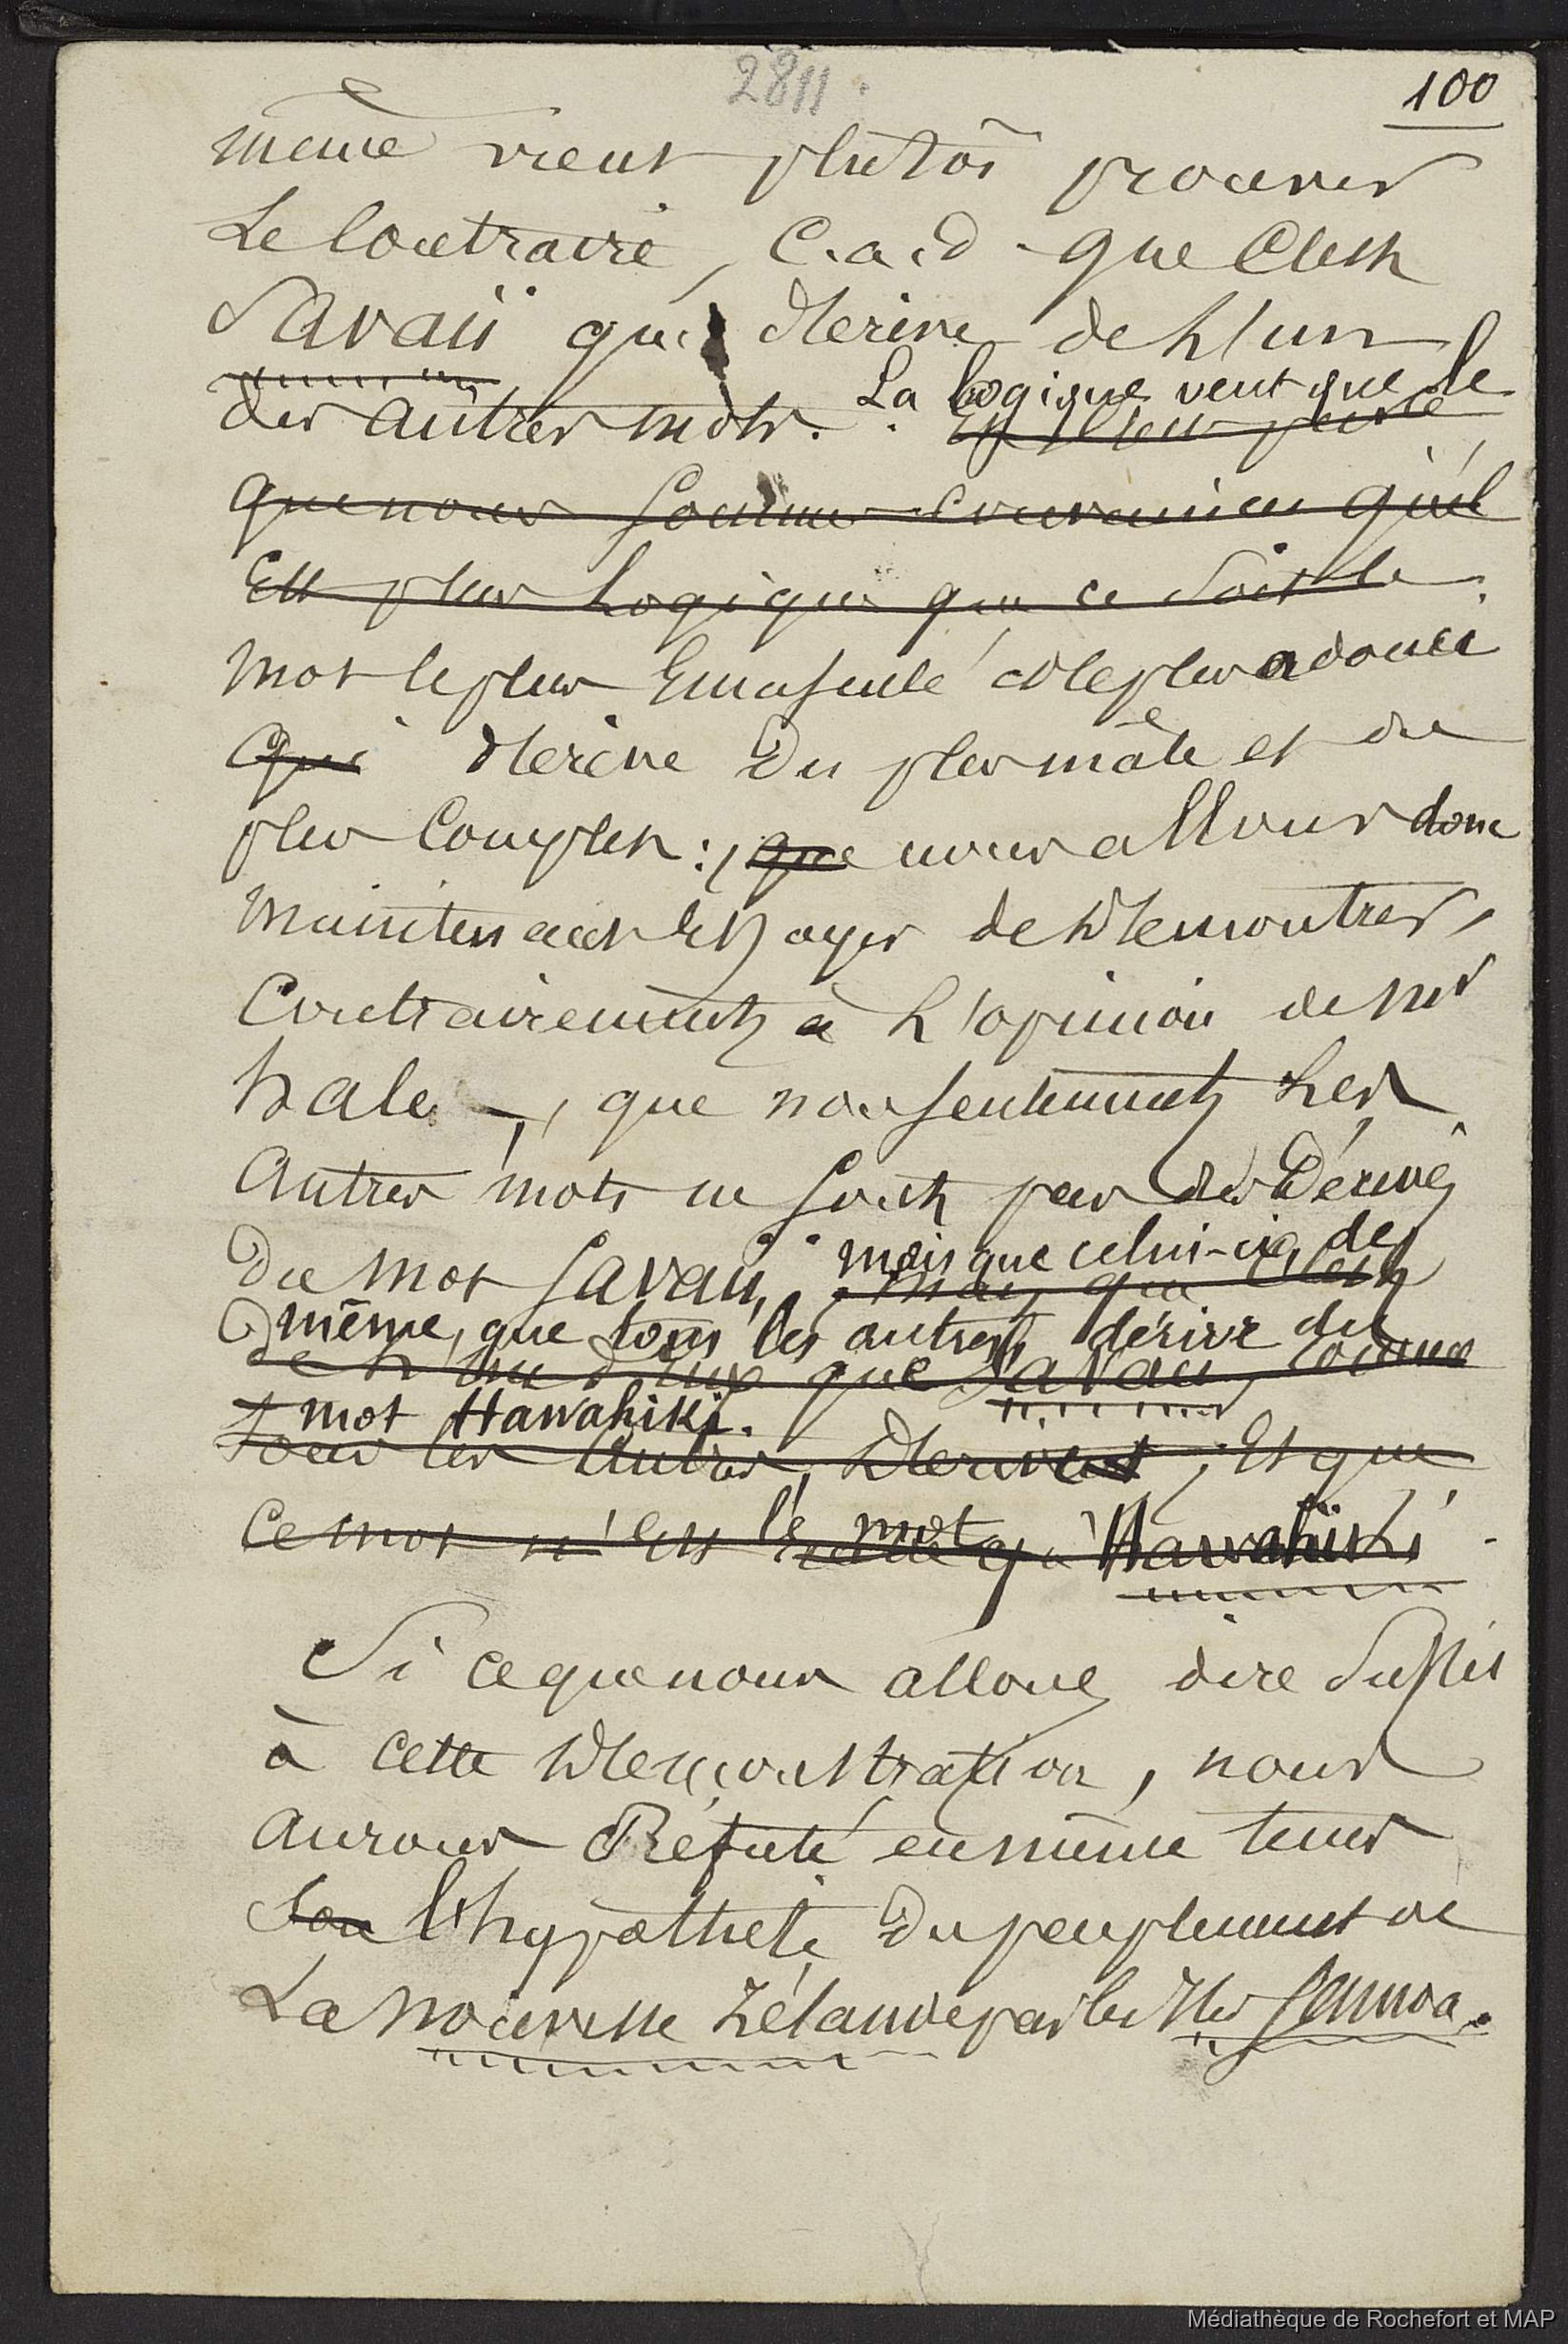 2811
100
même vient plutôt prouver
le contraire, c.a.d. que c'est
Savaii qui dérive de l'un
des autres mots. La logique veut que le
que nous sommes convaincu qu'il
est plus logique que ce soit le
mot le plus émasculé et le plus adouci
qui dérive du plus mâle et du
plus complet : que nous allons donc
maintenant essayer de démontrer,
contrairement à l'opinion de Mr
hale, que non seulement les
autres mots ne sont pas des dérivés
du mot Savaii, mais que celui-ci, de
mais que c'est
même, que tous les autres, dérive du
de l'un d'eux que Savaii, comme
mot Hawahiki.
tous les autres, dérivent, et que
ce mot n'est le mot Hawahiki
Si ce que nous allons dire suffit
à cette démonstration, nous
aurons réfuté en même tems
son l'hypothèse du peuplement de
la nouvelle Zélande par les îles Samoa.
Médiathèque de Rochefort et MAP